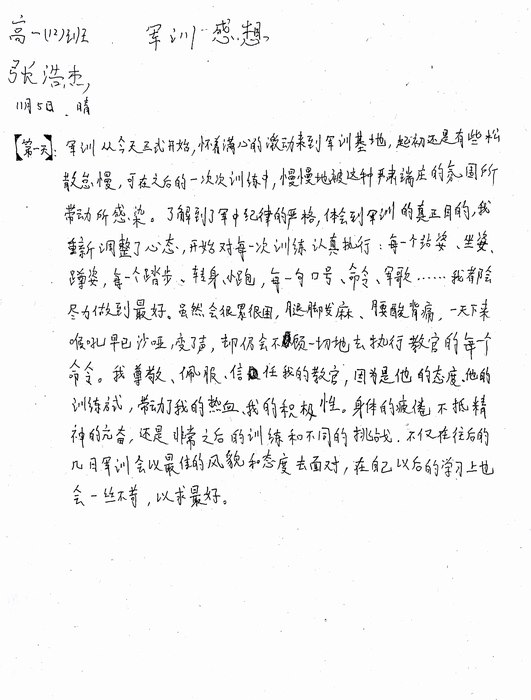 高一(12)班 军训·感想
张浩杰
11月5日 晴
【第一天】：军训从今天正式开始，怀着满心的激动来到军训基地，起初还是有些松
散怠慢，可在之后的一次次训练中，慢慢地被这种严肃端庄的氛围所
带动所感染。了解到了军中纪律的严格，体会到军训的真正目的，我
重新调整了心态，开始对每一次训练认真执行：每一个站姿、坐姿、
蹲姿，每一个踏步、转身、小跑，每一句口号、命令、军歌……我都会
尽力做到最好。虽然会很累很困，腿脚发麻、腰酸背痛，一天下来
喉咙早已沙哑，变了声，却仍会不顾一切地去执行教官的每个
命令。我尊敬、佩服、信任我的教官，因为是他的态度、他的
训练方式，带动了我的热血、我的积极性。身体的疲倦不抵精
神的亢奋，还是非常之后的训练和不同的挑战．不仅在往后的
几日军训会以最佳的风貌和态度去面对，在自己以后的学习上也
会一丝不苟，以求最好。